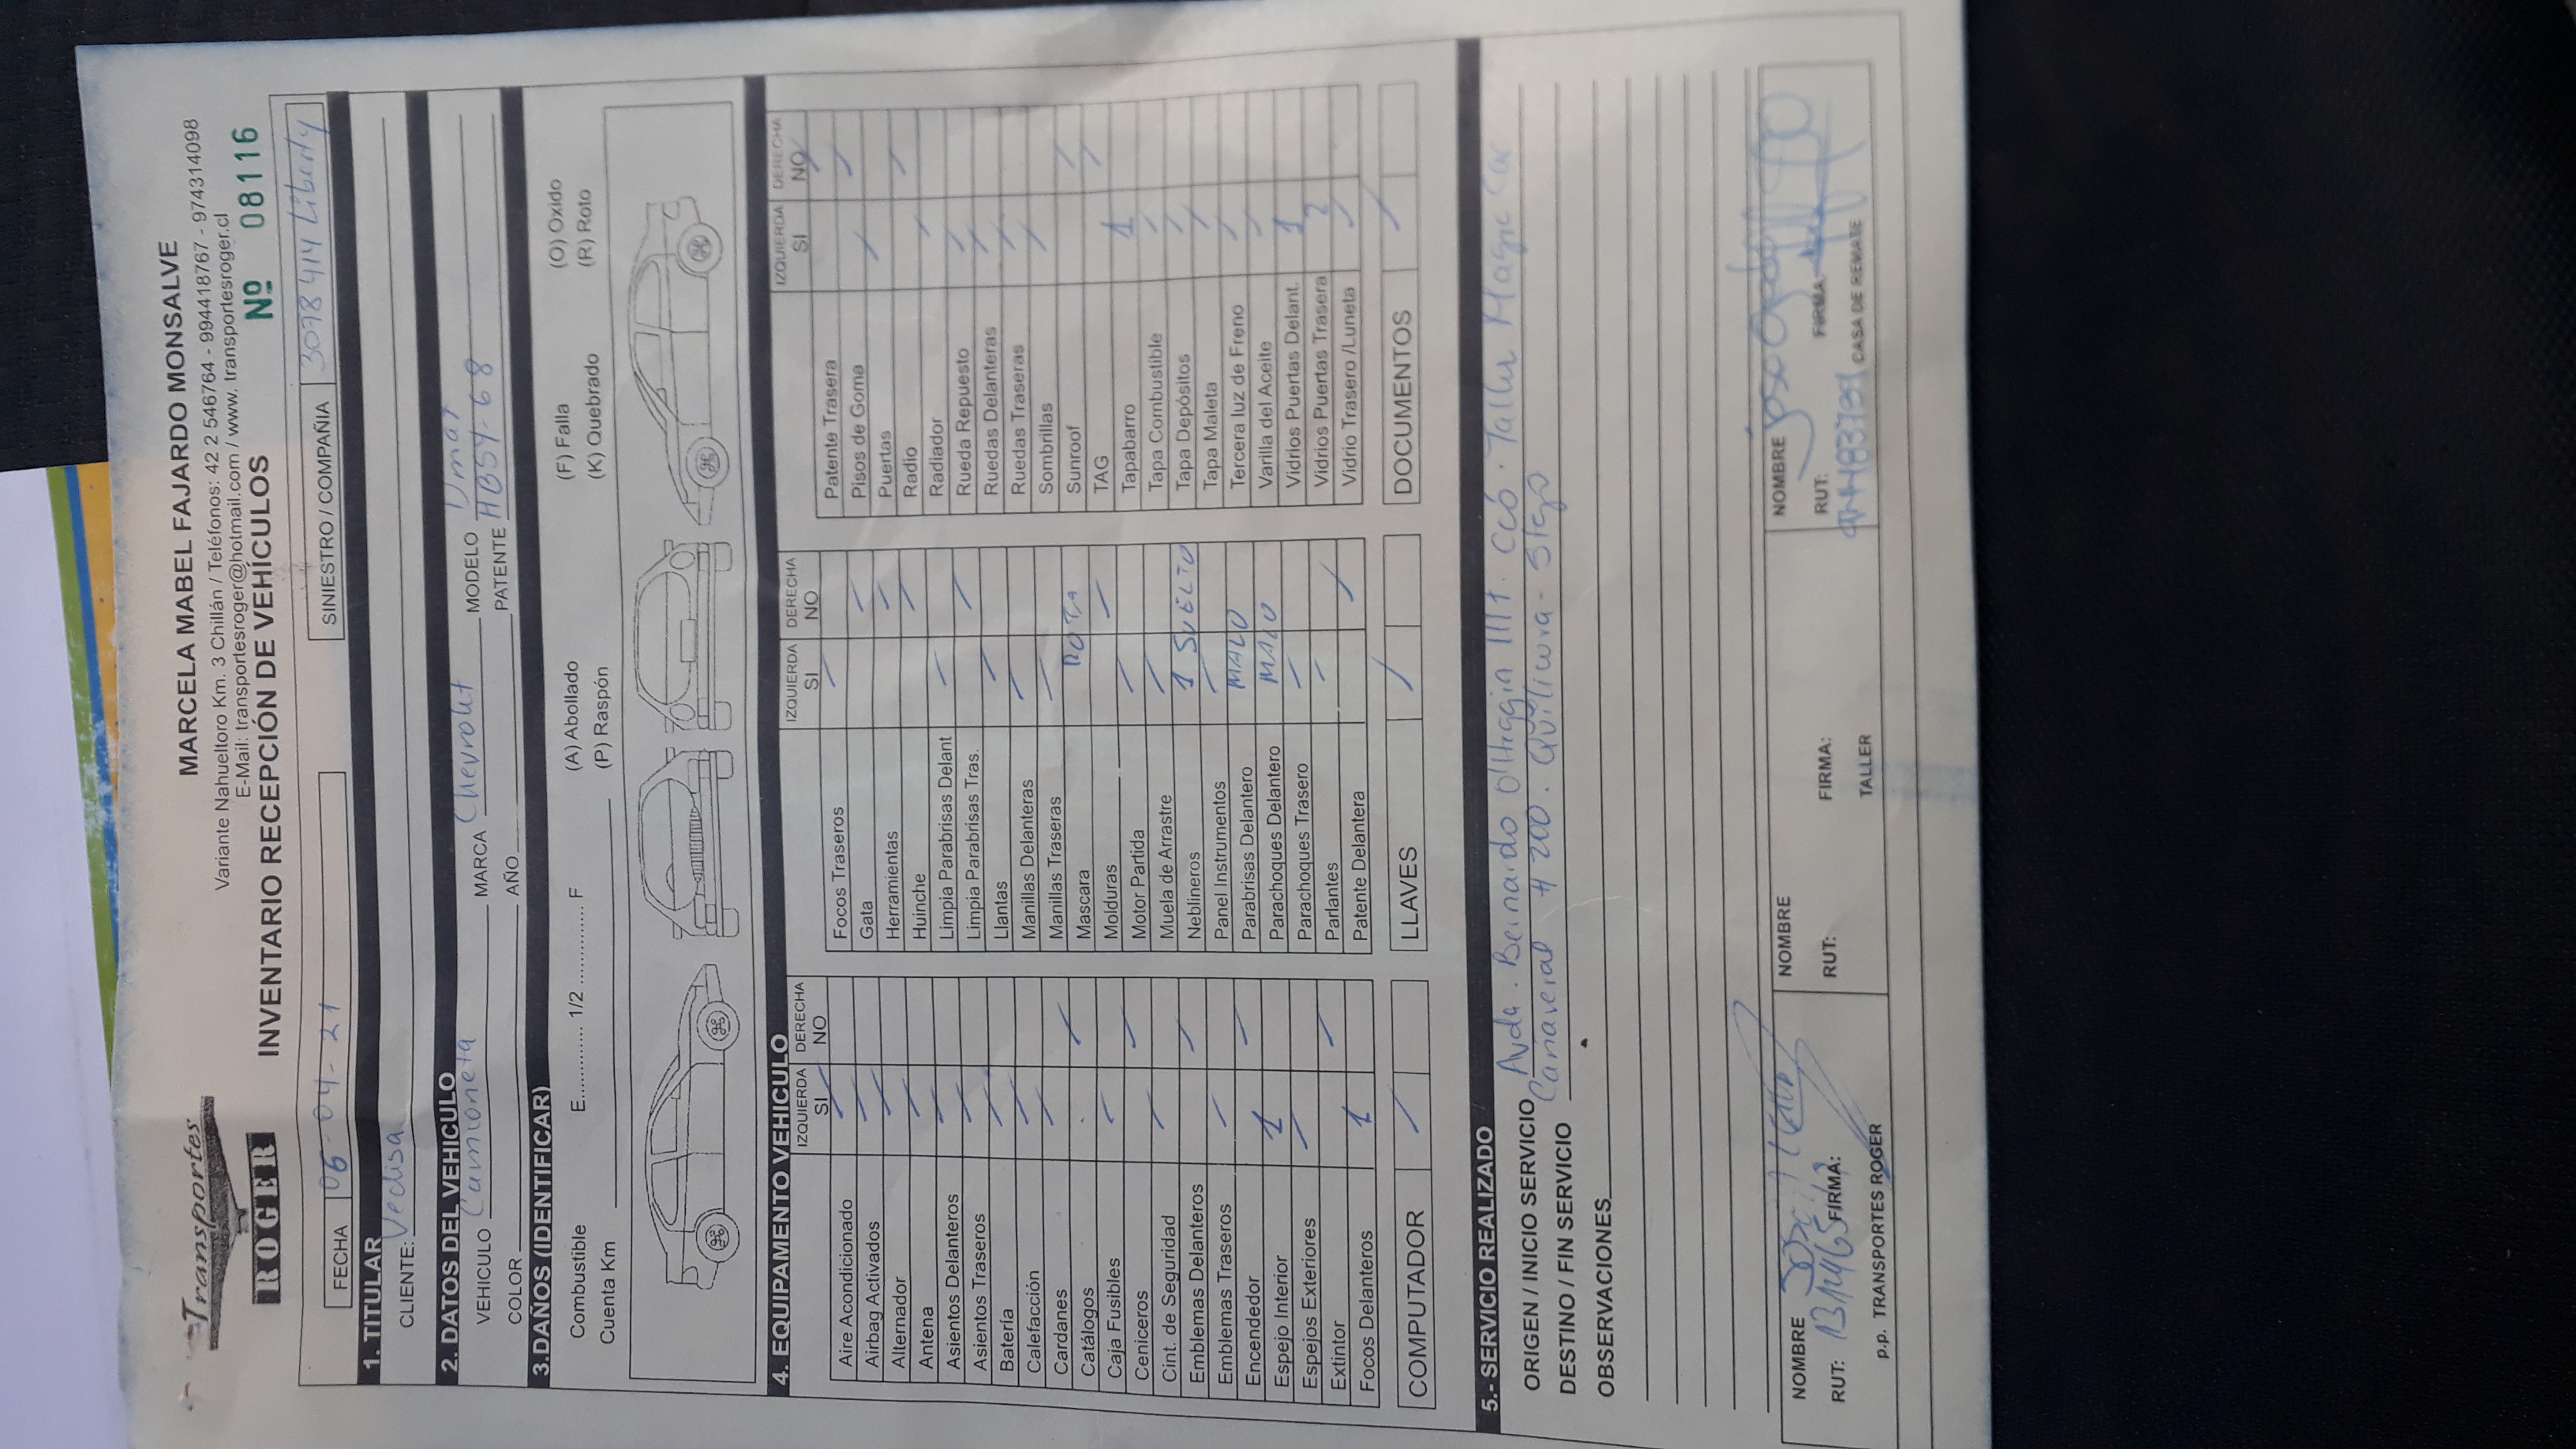 Transportes
ROGER
MARCELA MABEL FAJARDO MONSALVE
Variante Nahueltoro Km. 3 Chillán / Teléfonos: 42 2 546764 - 994418767 - 974314098
E-Mail: transportesroger@hotmail.com / www. transportesroger.cl
INVENTARIO RECEPCIÓN DE VEHÍCULOS
Nº 08116
FECHA 06-04-21
SINIESTRO / COMPAÑIA 3078414 Liberty
1. TITULAR
CLIENTE: Vedisa
2. DATOS DEL VEHICULO
VEHICULO Camioneta MARCA Chevrolet MODELO Dmax
COLOR AÑO PATENTE HBSY-68
3.DAÑOS (IDENTIFICAR)
Combustible E........... 1/2 ............ F (A) Abollado (F) Falla (O) Oxido
Cuenta Km (P) Raspón (K) Quebrado (R) Roto
4. EQUIPAMENTO VEHICULO
IZQUIERDA DERECHA
SI NO
Aire Acondicionado /
Airbag Activados /
Alternador /
Antena /
Asientos Delanteros /
Asientos Traseros /
Batería /
Calefacción /
Cardanes /
Catálogos /
Caja Fusibles /
Ceniceros /
Cint. de Seguridad /
Emblemas Delanteros /
Emblemas Traseros /
Encendedor /
Espejo Interior 1
Espejos Exteriores /
Extintor /
Focos Delanteros 1
COMPUTADOR /
IZQUIERDA DERECHA
SI NO
Focos Traseros /
Gata /
Herramientas /
Huinche /
Limpia Parabrisas Delant /
Limpia Parabrisas Tras. /
Llantas /
Manillas Delanteras /
Manillas Traseras /
Mascara ROTA
Molduras /
Motor Partida /
Muela de Arrastre /
Neblineros 1 SUELTO
Panel Instrumentos /
Parabrisas Delantero MALO
Parachoques Delantero MALO
Parachoques Trasero /
Parlantes /
Patente Delantera /
LLAVES /
IZQUIERDA DERECHA
SI NO
Patente Trasera /
Pisos de Goma /
Puertas /
Radio /
Radiador /
Rueda Repuesto /
Ruedas Delanteras /
Ruedas Traseras /
Sombrillas /
Sunroof /
TAG /
Tapabarro 1
Tapa Combustible /
Tapa Depósitos /
Tapa Maleta /
Tercera luz de Freno /
Varilla del Aceite /
Vidrios Puertas Delant. 1
Vidrios Puertas Trasera 2
Vidrio Trasero /Luneta /
DOCUMENTOS /
5.- SERVICIO REALIZADO
ORIGEN / INICIO SERVICIO Avda. Bernardo O'Higgin 1111. Ccó. Taller Magic Car
DESTINO / FIN SERVICIO Cañaveral # 200. Quilicura - Stego
OBSERVACIONES
NOMBRE José
RUT: FIRMA:
p.p. TRANSPORTES ROGER
NOMBRE
RUT: FIRMA:
TALLER
NOMBRE
RUT: FIRMA
CASA DE REMATE